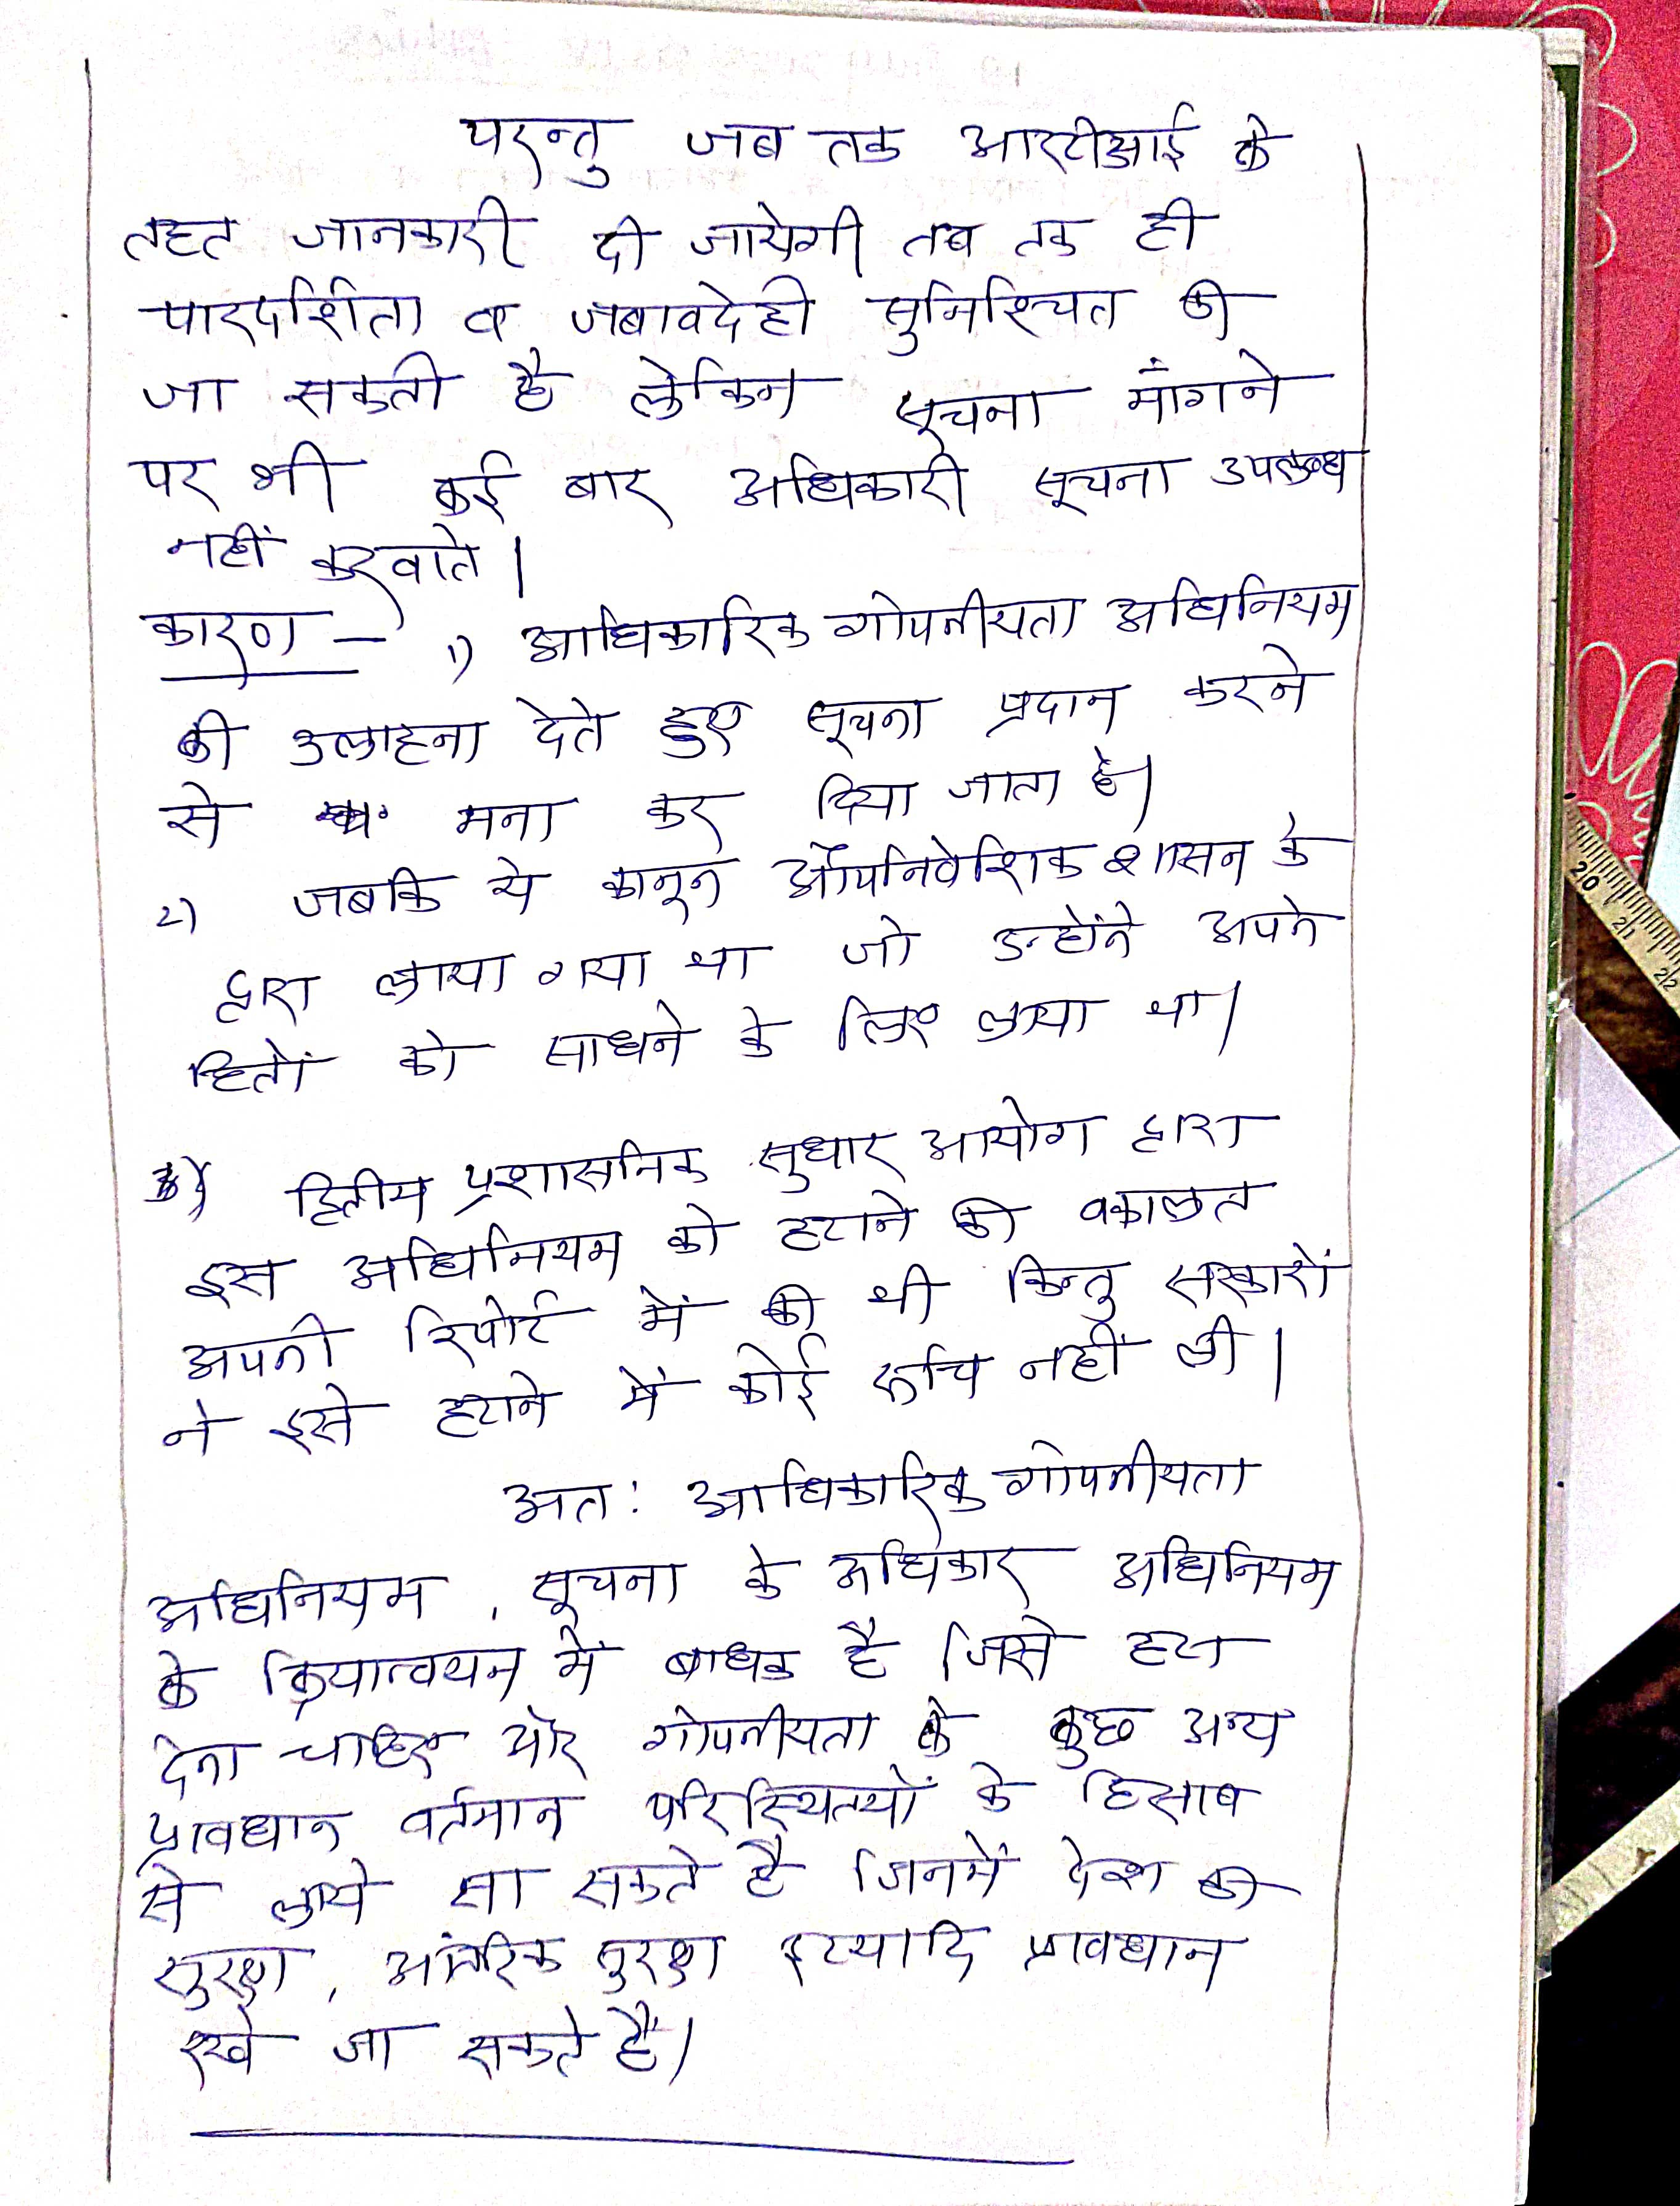 परन्तु जब तक आरटीआई के
तहत जानकारी दी जायेगी तब तक ही
पारदर्शिता व जबावदेही सुनिश्चित की
जा सकती है लेकिन सूचना माँगने
पर भी कई बार अधिकारी सूचना उपलब्ध
नहीं करवाते।
कारण - 1) आधिकारिक गोपनीयता अधिनियम
की उलाहना देते हुए सूचना प्रदान करने
से मना कर दिया जाता है।
2) जबकि ये कानून औपनिवेशिक शासन के
द्वारा लाया गया था जो उन्होंने अपने
हितों को साधने के लिए लाया था।
3) द्वितीय प्रशासनिक सुधार आयोग द्वारा
इस अधिनियम को हटाने की वकालत
अपनी रिपोर्ट में की थी किन्तु सरकारों
ने इसे हटाने में कोई रूचि नहीं ली।
अत: आधिकारिक गोपनीयता
अधिनियम, सूचना के अधिकार अधिनियम
के क्रियान्वयन में बाधक है जिसे हटा
देना चाहिए और गोपनीयता के कुछ अन्य
प्रावधान वर्तमान परिस्थितयों के हिसाब
से लाये जा सकते है जिनमें देश की
सुरक्षा, आंतरिक सुरक्षा इत्यादि प्रावधान
रखे जा सकते हैं।
20 21 22